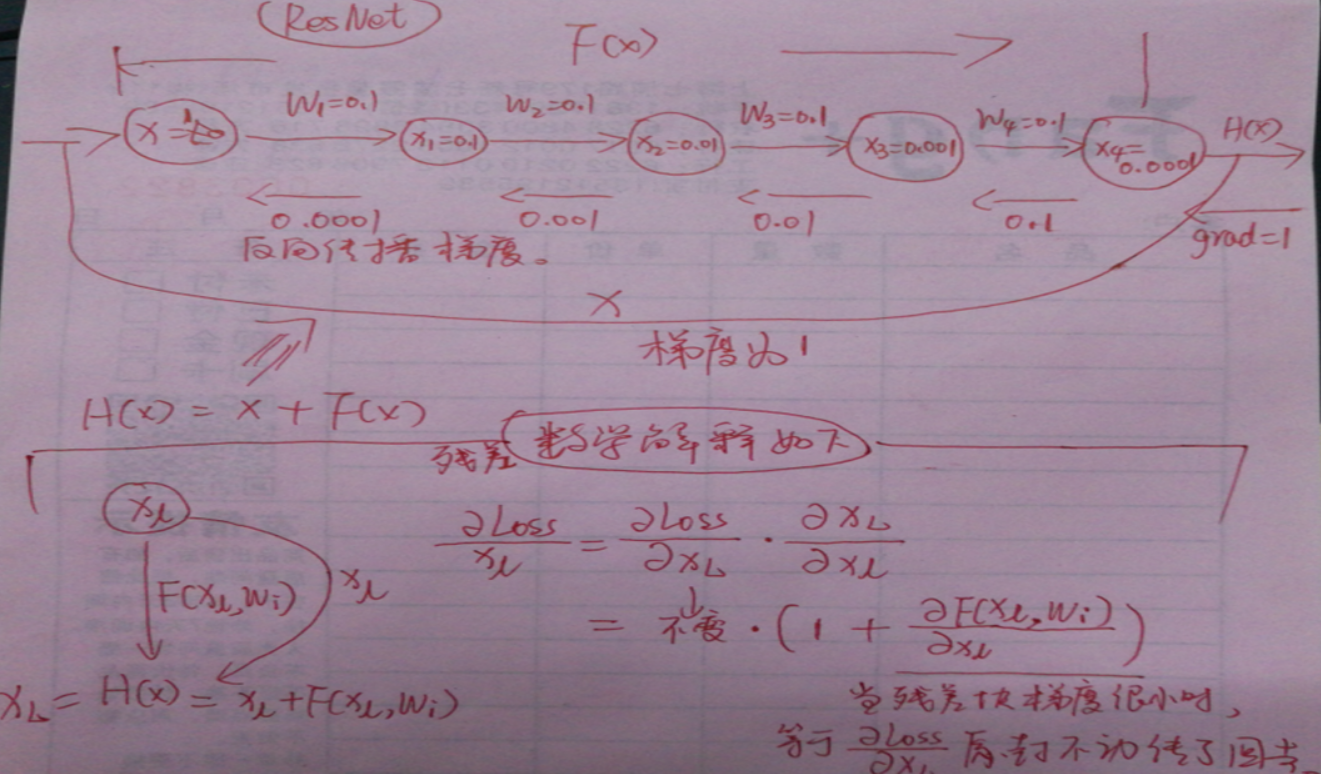 ResNet
F(x)
W₁=0.1 W₂=0.1 W₃=0.1 W₄=0.1 H(x)
x=1 x₁=0.1 x₂=0.01 x₃=0.001 x₄=0.0001
0.0001 0.001 0.01 0.1 grad=1
反向传播梯度。
x
梯度为1
H(x) = x + F(x)
残差 数学解释如下
x_l
∂Loss/x_l = ∂Loss/∂x_L · ∂x_L/∂x_l
F(x_l,Wi) x_l
= 不变 · (1 + ∂F(x_l,Wi)/∂x_l)
x_L = H(x) = x_l+F(x_l,Wi)
当残差块梯度很小时,
等于 ∂Loss/∂x_L 原封不动传了回去